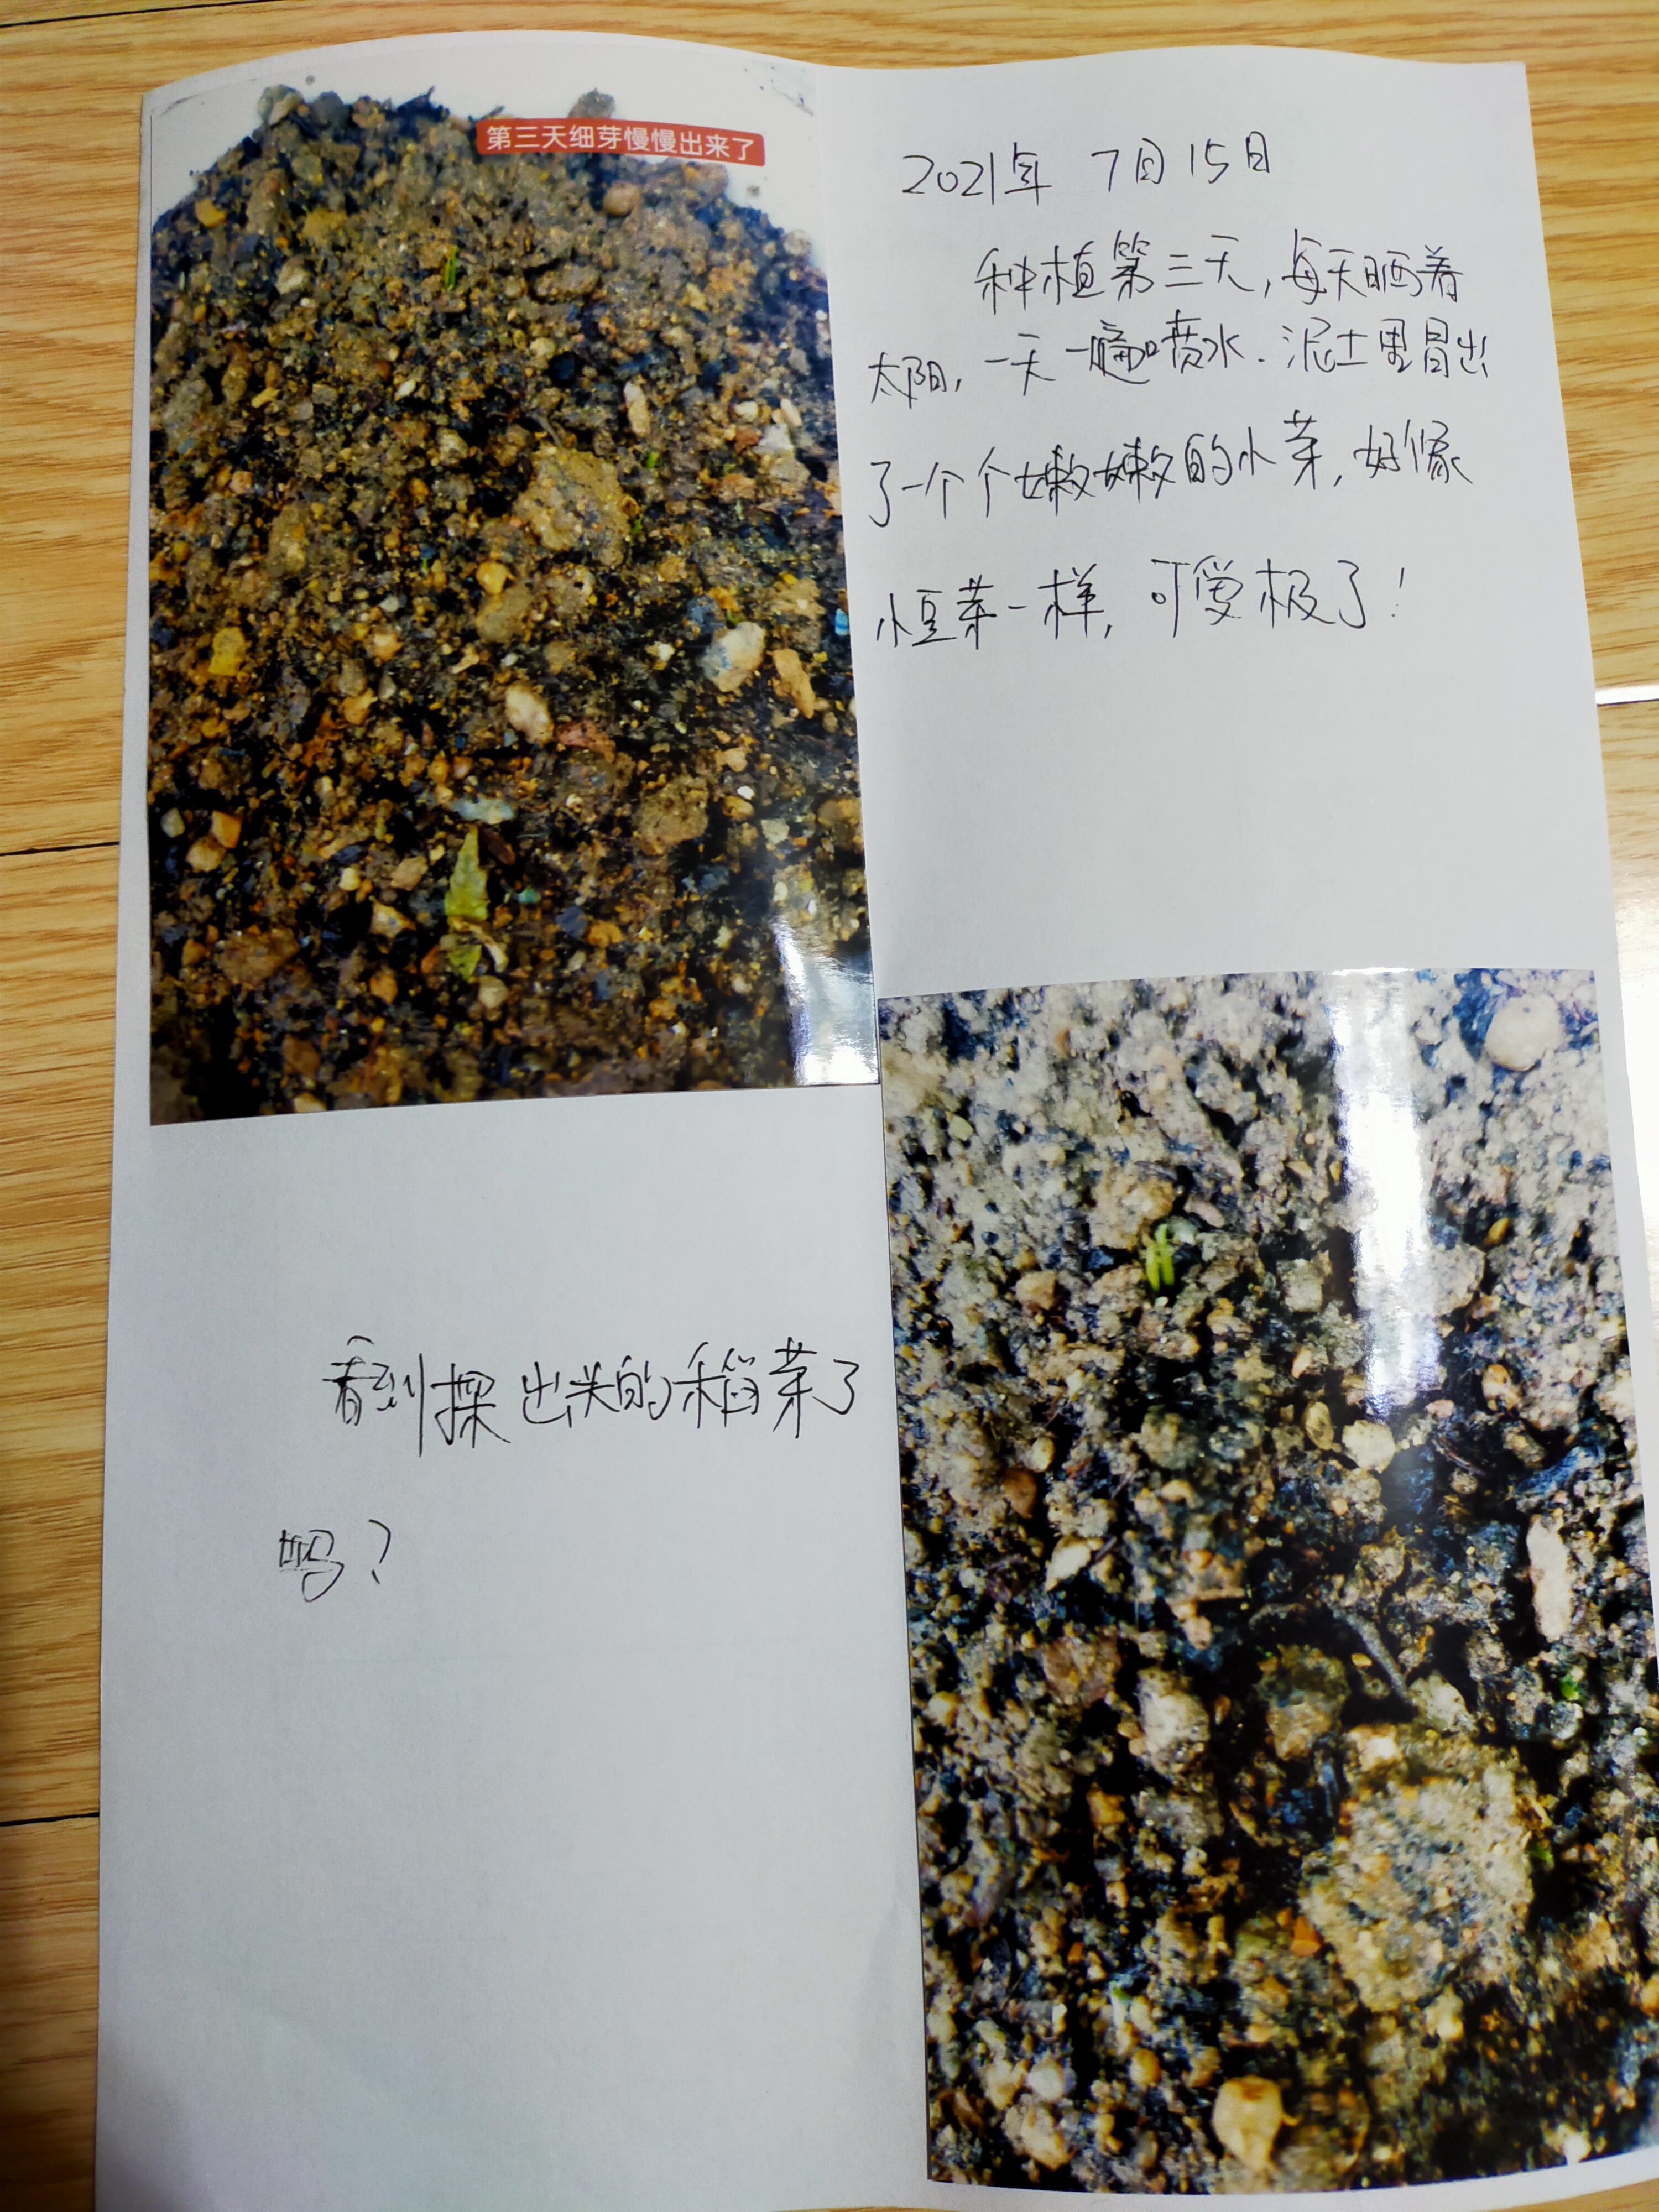 第三天细芽慢慢出来了
2021年 7月15日
种植第三天,每天晒着
太阳,一天一遍喷水.泥土里冒出
了一个个嫩嫩的小芽,好像
小豆芽一样,可爱极了!
看到探出头的稻芽了
吗?